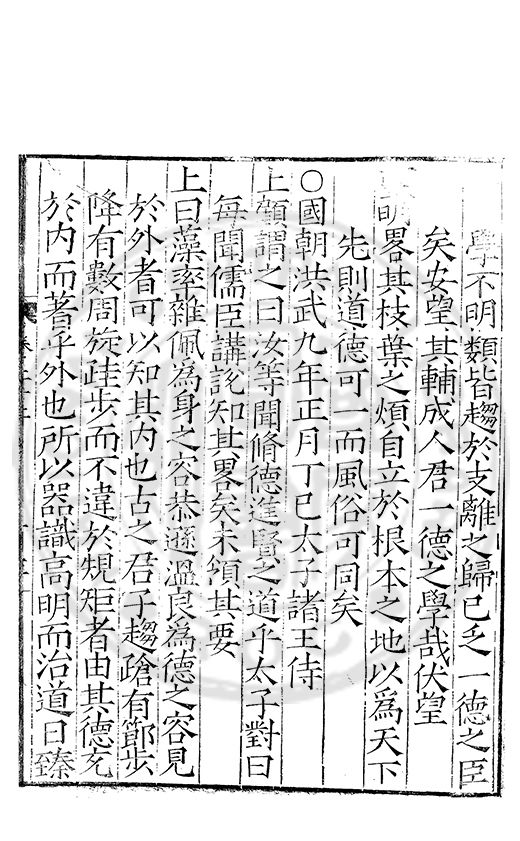 學不明類皆趨於支離之歸已乏一德之臣
矣安望其輔成人君一德之學哉伏望
明畧其枝葉之煩自立於根本之地以為天下
先則道德可一而風俗可同矣
○國朝洪武九年正月丁巳太子諸王侍
上顧謂之曰汝等聞脩德進賢之道乎太子對曰
每聞儒臣講說知其畧矣未領其要
上曰藻率雜佩為身之容恭遜溫良為德之容見
於外者可以知其內也古之君子趨蹌有節步
降有數周旋跬步而不違於規矩者由其德充
於内而著乎外也所以器識高明而治道日臻